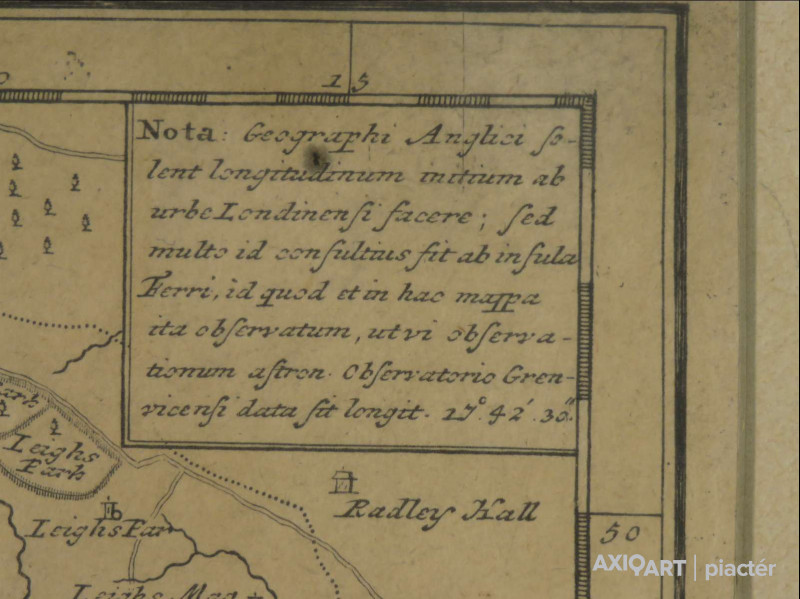 15
Nota: Geographi Anglici ſo-
lent longitudinum initium ab
urbe Londinenſi facere; ſed
multo id conſultius fit ab inſula
Ferri, id quod et in hac mappa
ita obſervatum, ut vi obſerva-
tionum aſtron. Obſervatorio Gren-
vicenſi data ſit longit. 17°. 42'. 30''.
Leighs
Park
Radley Hall
Leighs Par
50
Leighs Mag
AXIOART | piactér